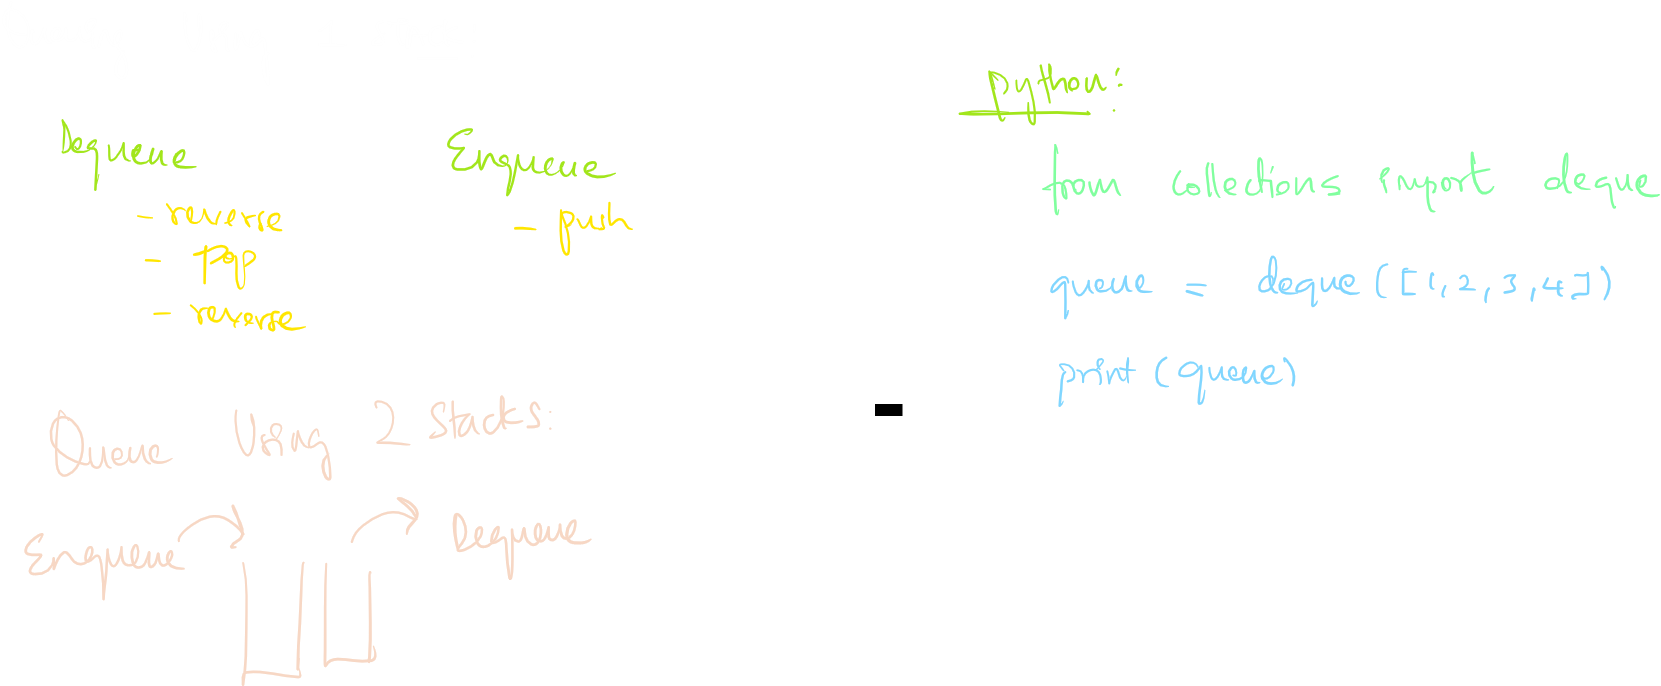 Dequeue
- reverse
- pop
- reverse
Enqueue
- push
Queue Using 2 Stacks:
Enqueue
Dequeue
python:
from collections import deque
queue = deque([1,2,3,4])
print(queue)